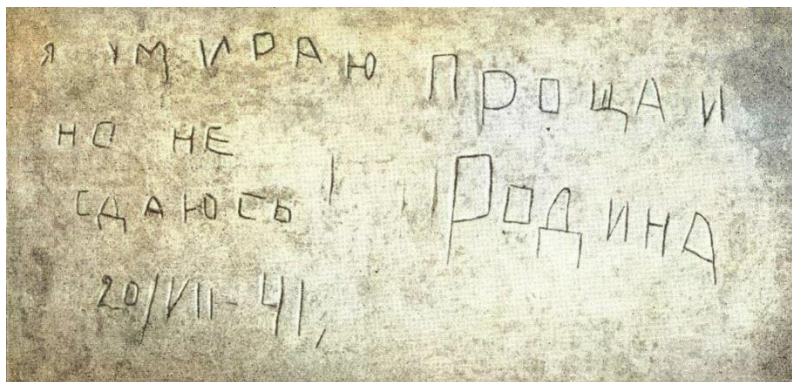 я умираю
но не
сдаюсь!
20/VII-41.
ПРОЩАИ
РОДИНА